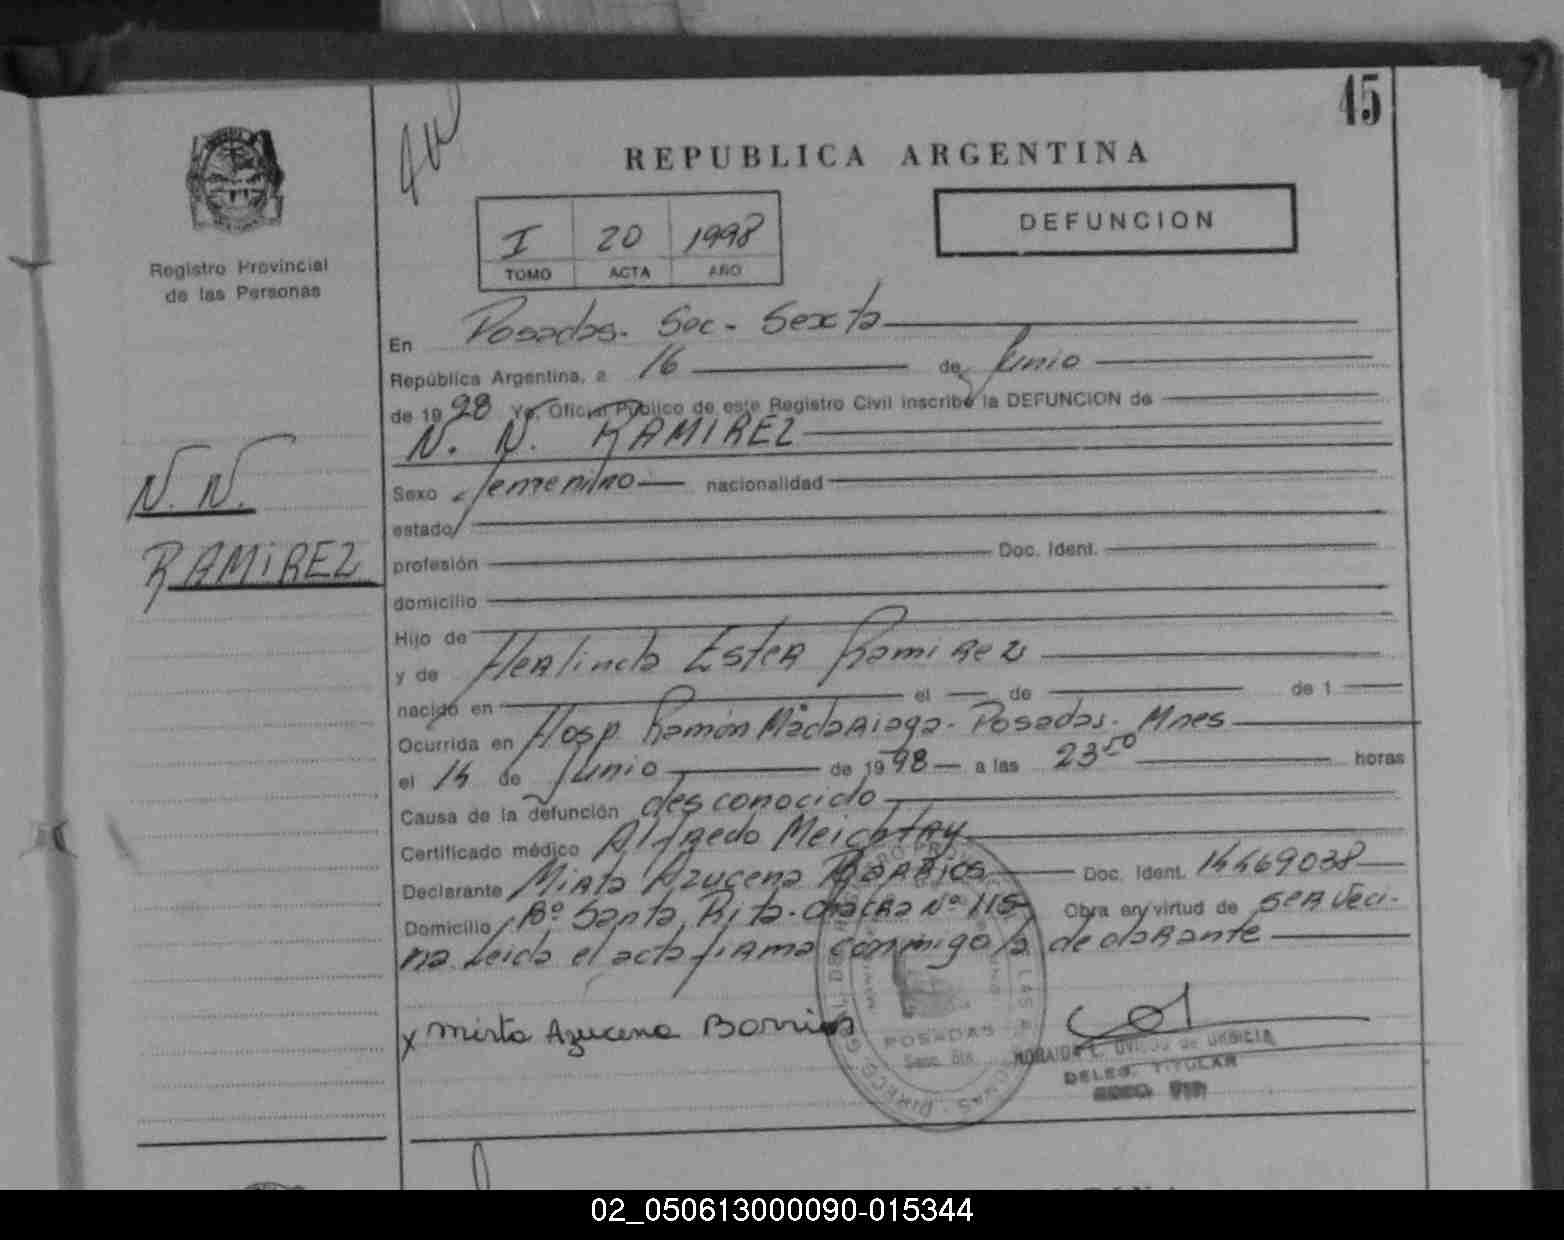 45
REPUBLICA ARGENTINA
DEFUNCION
I 20 1998
TOMO ACTA AÑO
Registro Provincial
de las Personas
En Posadas. Sec. Sexta
República Argentina, a 16 de Junio
de 1998 Yo, Oficial Público de este Registro Civil inscribo la DEFUNCION de
N. N. RAMIREZ
N. N.
RAMIREZ
Sexo femenino nacionalidad
estado
profesión Doc. Ident.
domicilio
Hijo de
y de Herlinda Ester Ramirez
nacido en el de de 1
Ocurrida en Hosp. Ramón Madariaga - Posadas. Mnes
el 14 de Junio de 1998 a las 23 50 horas
Causa de la defunción desconocido
Certificado médico Alfredo
Declarante Mirta Azucena Barrios Doc. Ident. 14469038
Domicilio Bº Santa Rita - chacra Nº 115 Obra en virtud de ser veci-
na. Leida el acta firma conmigo la declarante
x Mirta Azucena Barrios
POSADAS
DELEG. TITULAR
02_050613000090-015344